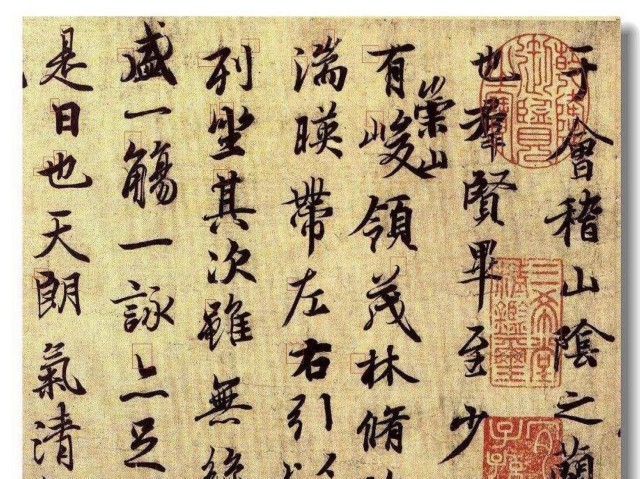 于會稽山陰之蘭
也羣賢畢至少
有崇山峻領茂林脩
湍暎帶左右引以
列坐其次雖無絲
盛一觴一詠亦足
是日也天朗氣清
三希堂
精鑑璽
宜
子孫